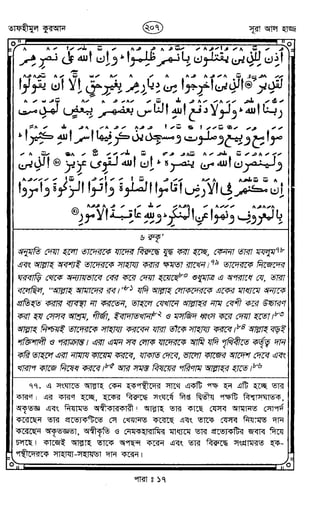 তাফহীমুল কুরআন
২০৭
সূরা আল হাজ্জ
أُذِنَ لِلَّذِينَ يُقْتَلُونَ بِأَنَّهُمْ ظُلِمُوا ۚ وَإِنَّ اللَّهَ عَلَىٰ نَصْرِهِمْ
لَقَدِيرٌ ۝ الَّذِينَ أُخْرِجُوا مِن دِيَارِهِم بِغَيْرِ حَقٍّ إِلَّا أَن يَقُولُوا
رَبُّنَا اللَّهُ ۗ وَلَوْلَا دَفْعُ اللَّهِ النَّاسَ بَعْضَهُم بِبَعْضٍ لَّهُدِّمَتْ
صَوَامِعُ وَبِيَعٌ وَصَلَوَاتٌ وَمَسَاجِدُ يُذْكَرُ فِيهَا اسْمُ اللَّهِ كَثِيرًا ۗ
وَلَيَنصُرَنَّ اللَّهُ مَن يَنصُرُهُ ۗ إِنَّ اللَّهَ لَقَوِيٌّ عَزِيزٌ ۝ الَّذِينَ
إِن مَّكَّنَّاهُمْ فِي الْأَرْضِ أَقَامُوا الصَّلَوٰةَ وَآتَوُا الزَّكَوٰةَ وَأَمَرُوا
بِالْمَعْرُوفِ وَنَهَوْا عَنِ الْمُنكَرِ ۗ وَلِلَّهِ عَاقِبَةُ الْأُمُورِ ۝
৬ রুকু'
অনুমতি দেয়া হলো তাদেরকে যাদের বিরুদ্ধে যুদ্ধ করা হচ্ছে, কেননা তারা মজলুম৭৮
এবং আল্লাহ অবশ্যই তাদেরকে সাহায্য করার ক্ষমতা রাখেন।৭৯ তাদেরকে নিজেদের
ঘরবাড়ি থেকে অন্যায়ভাবে বের করে দেয়া হয়েছে৮০ শুধুমাত্র এ অপরাধে যে, তারা
বলেছিল, "আল্লাহ আমাদের রব।"৮১ যদি আল্লাহ লোকদেরকে একের মাধ্যমে অন্যকে
প্রতিহত করার ব্যবস্থা না করতেন, তাহলে যেখানে আল্লাহর নাম বেশী করে উচ্চারণ
করা হয় সেসব আশ্রম, গীর্জা, ইবাদাতখানা৮২ ও মসজিদ ধ্বংস করে দেয়া হতো।৮৩
আল্লাহ নিশ্চয়ই তাদেরকে সাহায্য করবেন যারা তাঁকে সাহায্য করবে।৮৪ আল্লাহ বড়ই
শক্তিশালী ও পরাক্রান্ত। এরা এমন সব লোক যাদেরকে আমি যদি পৃথিবীতে কর্তৃত্ব দান
করি তাহলে এরা নামায কায়েম করবে, যাকাত দেবে, ভালো কাজের আদেশ দেবে এবং
খারাপ কাজে নিষেধ করবে।৮৫ আর সমস্ত বিষয়ের পরিণাম আল্লাহর হাতে।৮৬
৭৭. এ সংঘাতে আল্লাহ কেন হকপন্থীদের সাথে একটি পক্ষ হন এটি হচ্ছে তার
কারণ। এর কারণ হচ্ছে, হকের বিরুদ্ধে সংঘর্ষে লিপ্ত দ্বিতীয় পক্ষটি বিশ্বাসঘাতক,
অকৃতজ্ঞ এবং নিয়ামত অস্বীকারকারী। আল্লাহ তার কাছে যেসব আমানত সোপর্দ
করেছেন তার প্রত্যেকটিতে সে খেয়ানত করেছে এবং তাকে যেসব নিয়ামত দান
করেছেন অকৃতজ্ঞতা, অস্বীকৃতি ও নেমকহারামির মাধ্যমে তার প্রত্যেকটির জবাব দিয়ে
চলছে। কাজেই আল্লাহ তাকে অপছন্দ করেন এবং তার বিরুদ্ধে সংগ্রামরত হক-
পন্থীদেরকে সাহায্য-সহায়তা দান করেন।
পারা : ১৭